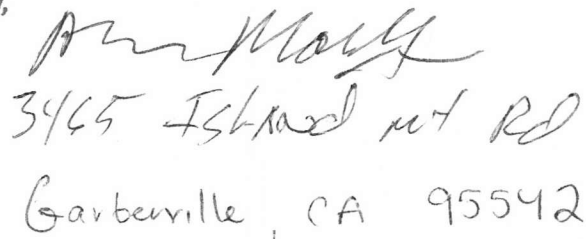 3465 Island mt Rd
Garberville, CA 95542